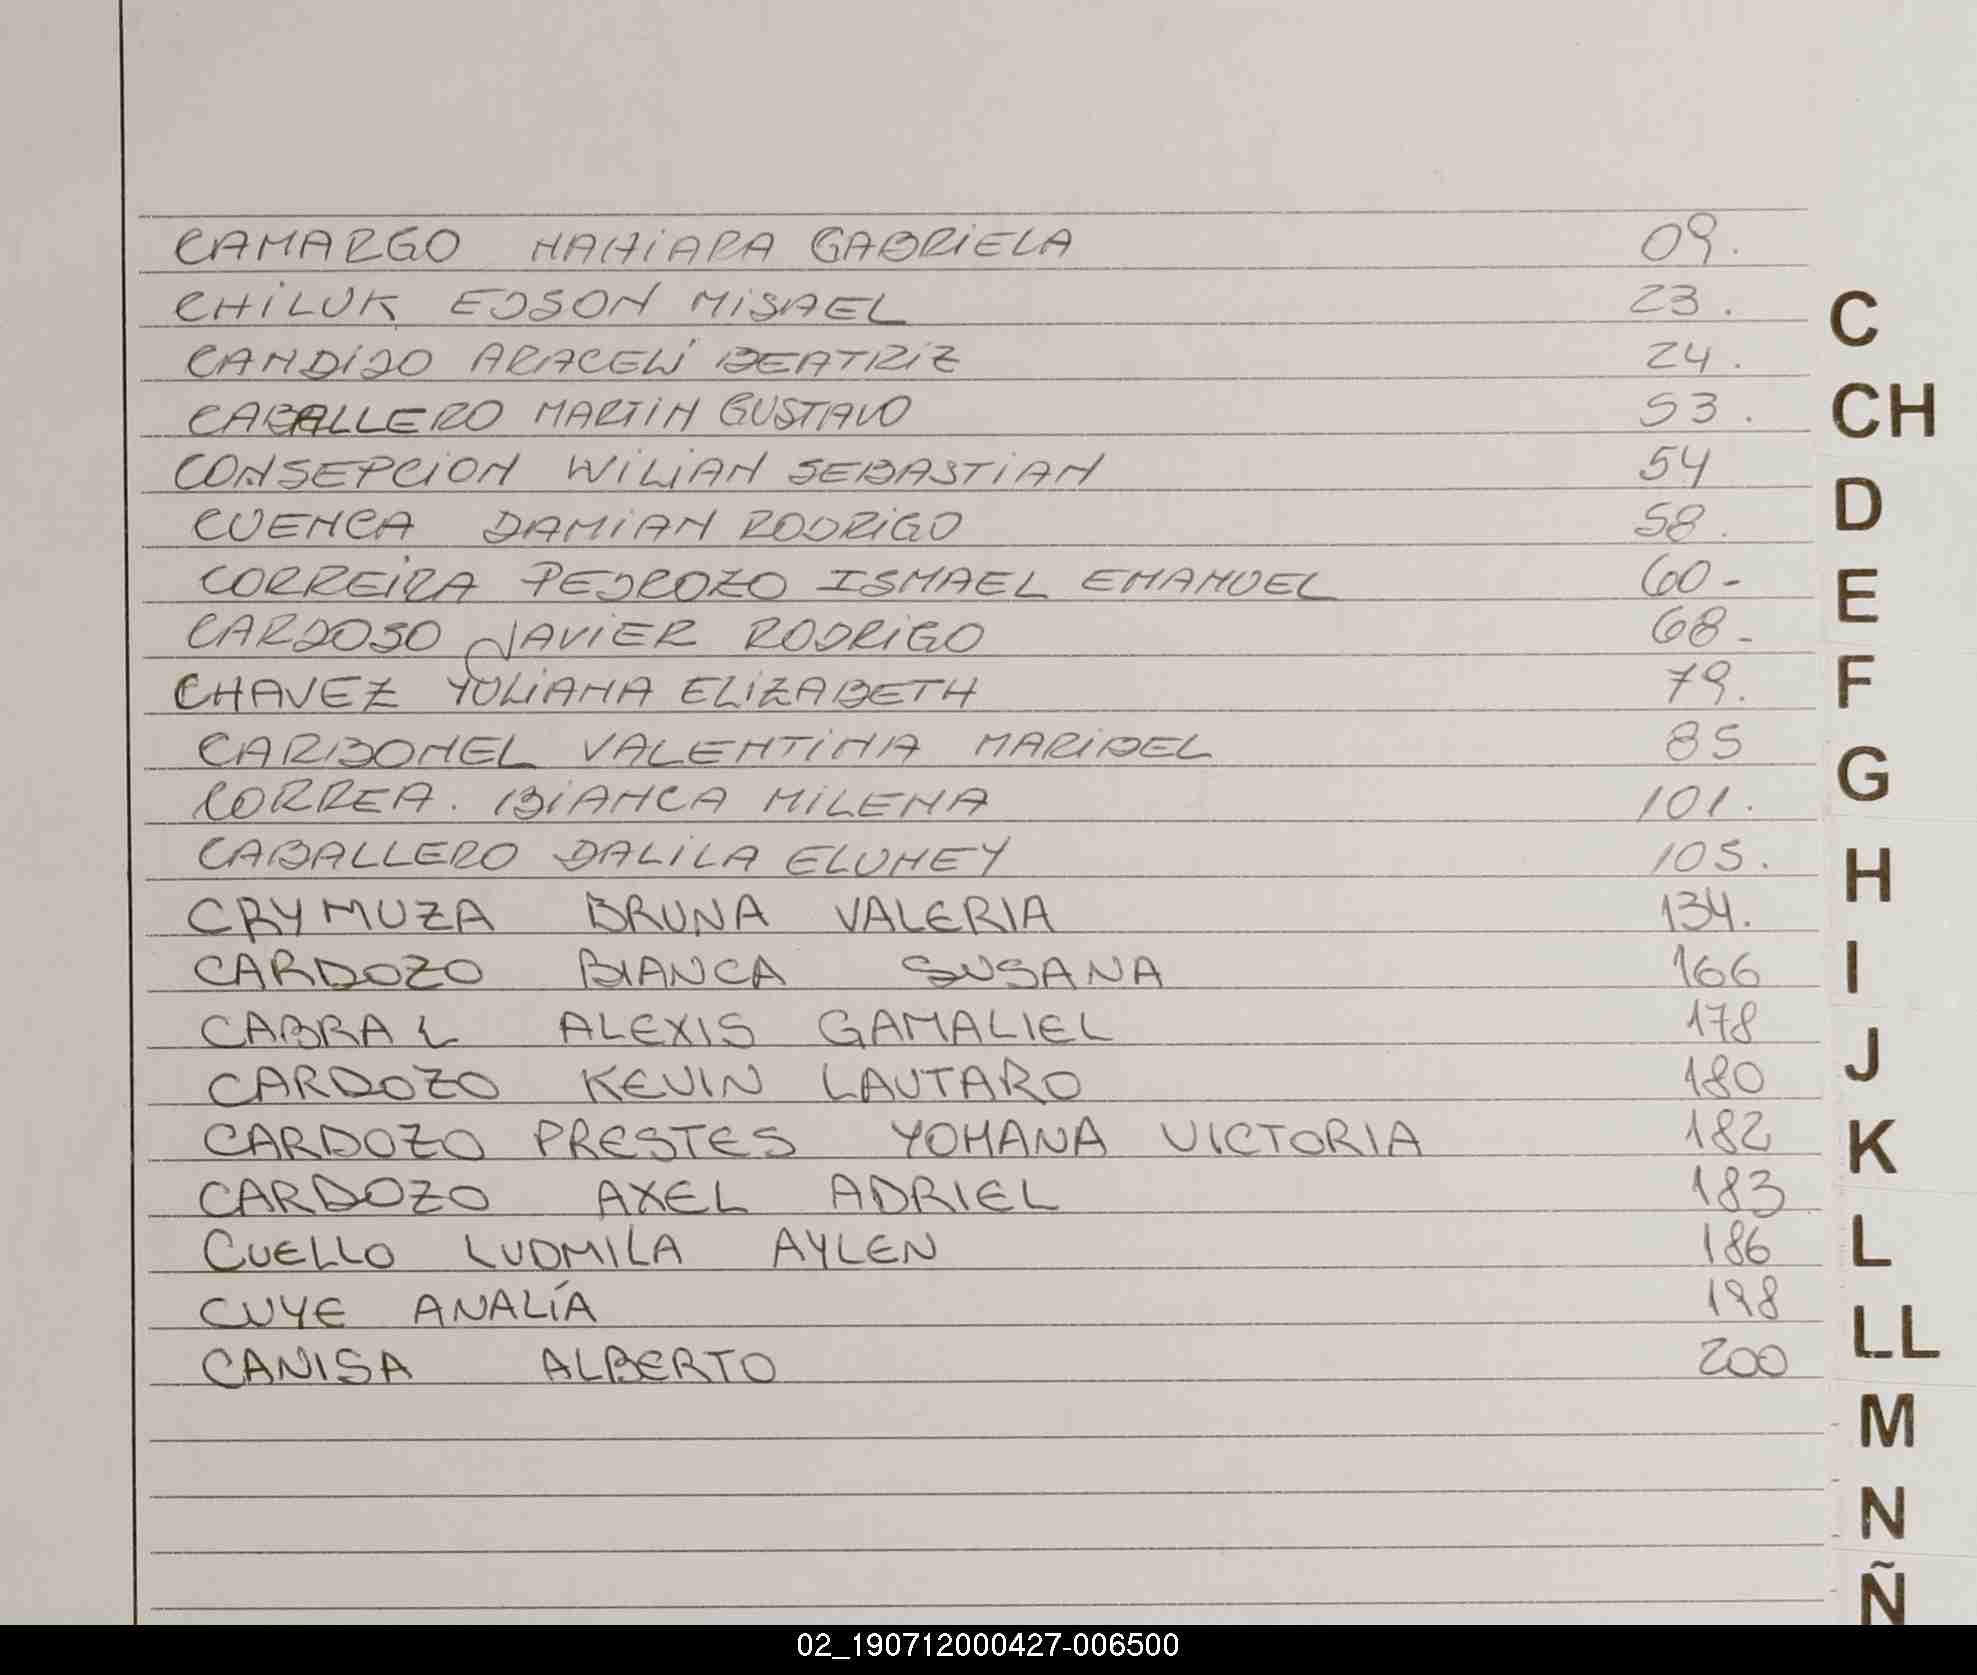 CAMARGO NAHIARA GABRIELA 09.
CHILUK EDSON MISAEL 23.
CANDIDO ARACELI BEATRIZ 24.
CABALLERO MARTIN GUSTAVO 53.
CONSEPCION WILIAN SEBASTIAN 54
CUENCA DAMIAN RODRIGO 58.
CORREIRA PEDROZO ISMAEL EMANUEL 60-
CARDOSO JAVIER RODRIGO 68-
CHAVEZ YULIANA ELIZABETH 79.
CARBONEL VALENTINA MARIBEL 85
CORREA. BIANCA MILENA 101.
CABALLERO DALILA ELUNEY 105.
CRYMUZA BRUNA VALERIA 134.
CARDOZO BIANCA SUSANA 166
CABRAL ALEXIS GAMALIEL 178
CARDOZO KEVIN LAUTARO 180
CARDOZO PRESTES YOHANA VICTORIA 182
CARDOZO AXEL ADRIEL 183
CUELLO LUDMILA AYLEN 186
CUYE ANALÍA 198
CANISA ALBERTO 200
C
CH
D
E
F
G
H
I
J
K
L
LL
M
N
Ñ
02_190712000427-006500